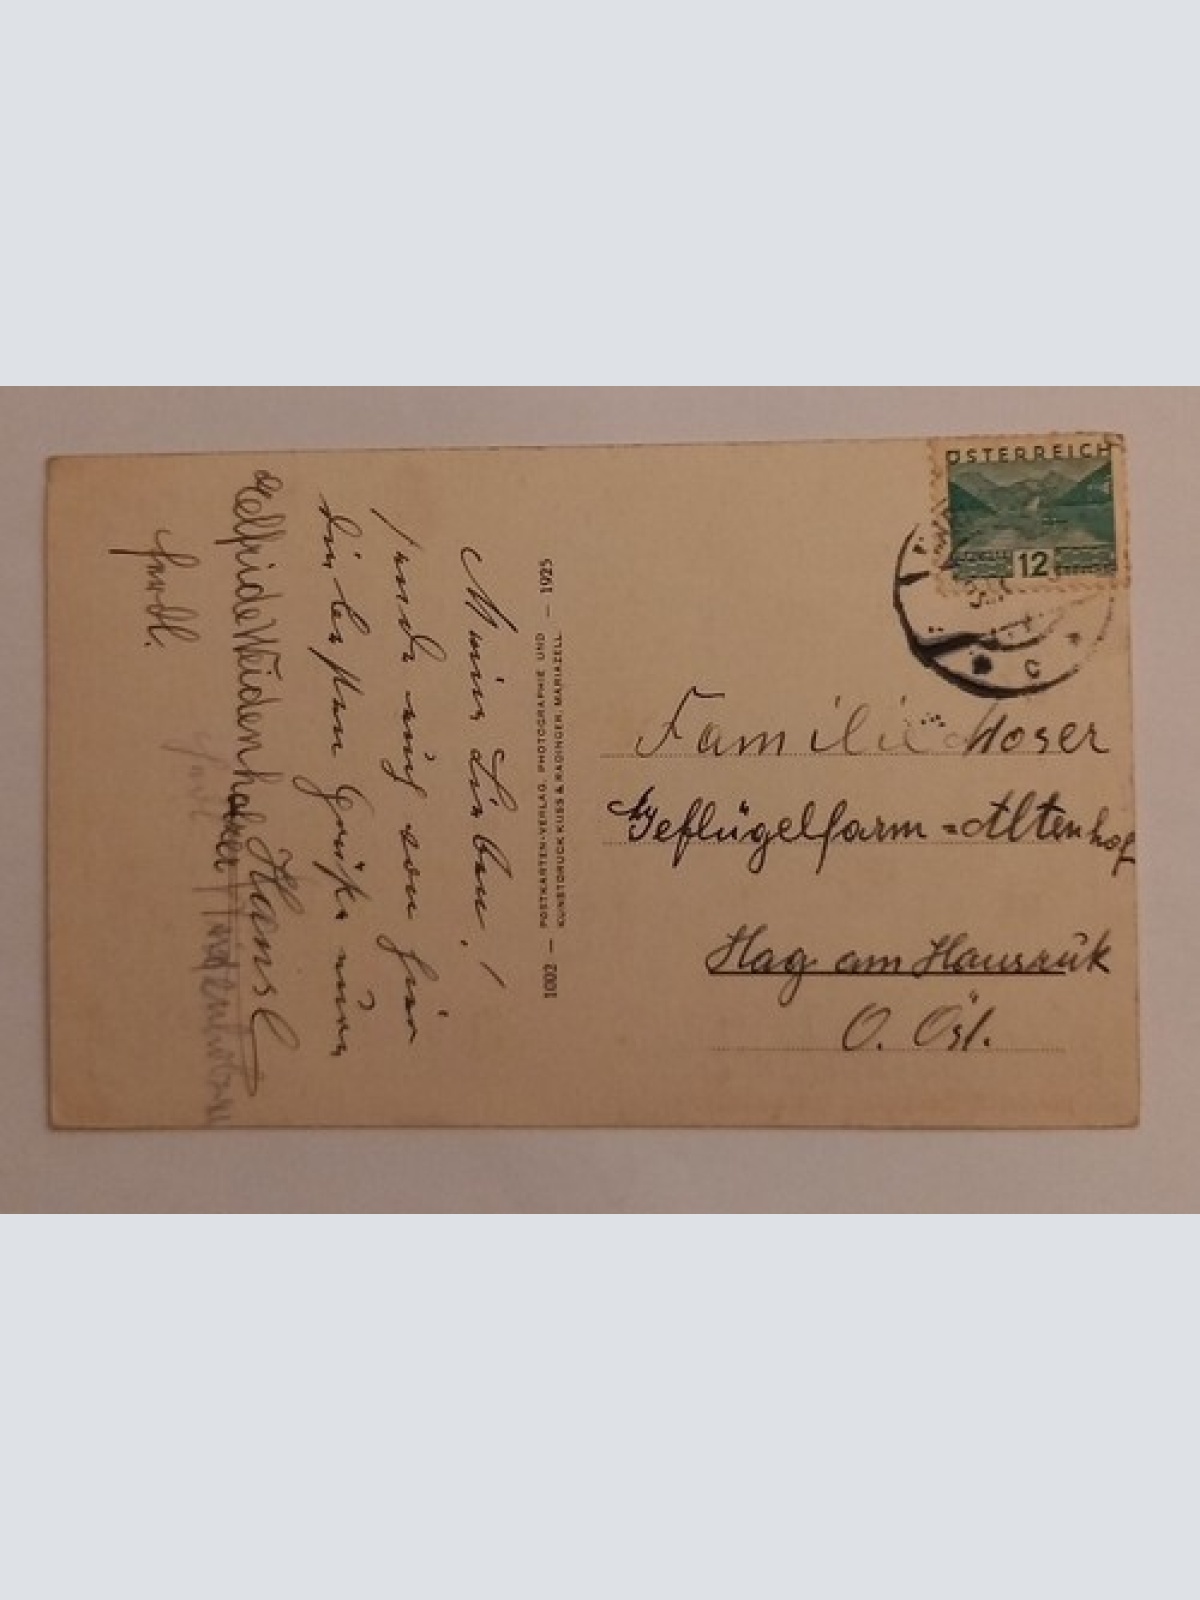 Meine Lieben!
sende euch von hier
die besten Grüße eure
Hansl
Elfriede Weidenholzer
ÖSTERREICH
12
Familie Moser
Geflügelfarm = Altenhof
Hag am Hausruk
O. Öst.
1002 — POSTKARTEN-VERLAG, PHOTOGRAPHIE UND — 1925
KUNSTDRUCK KUSS & RADINGER, MARIAZELL